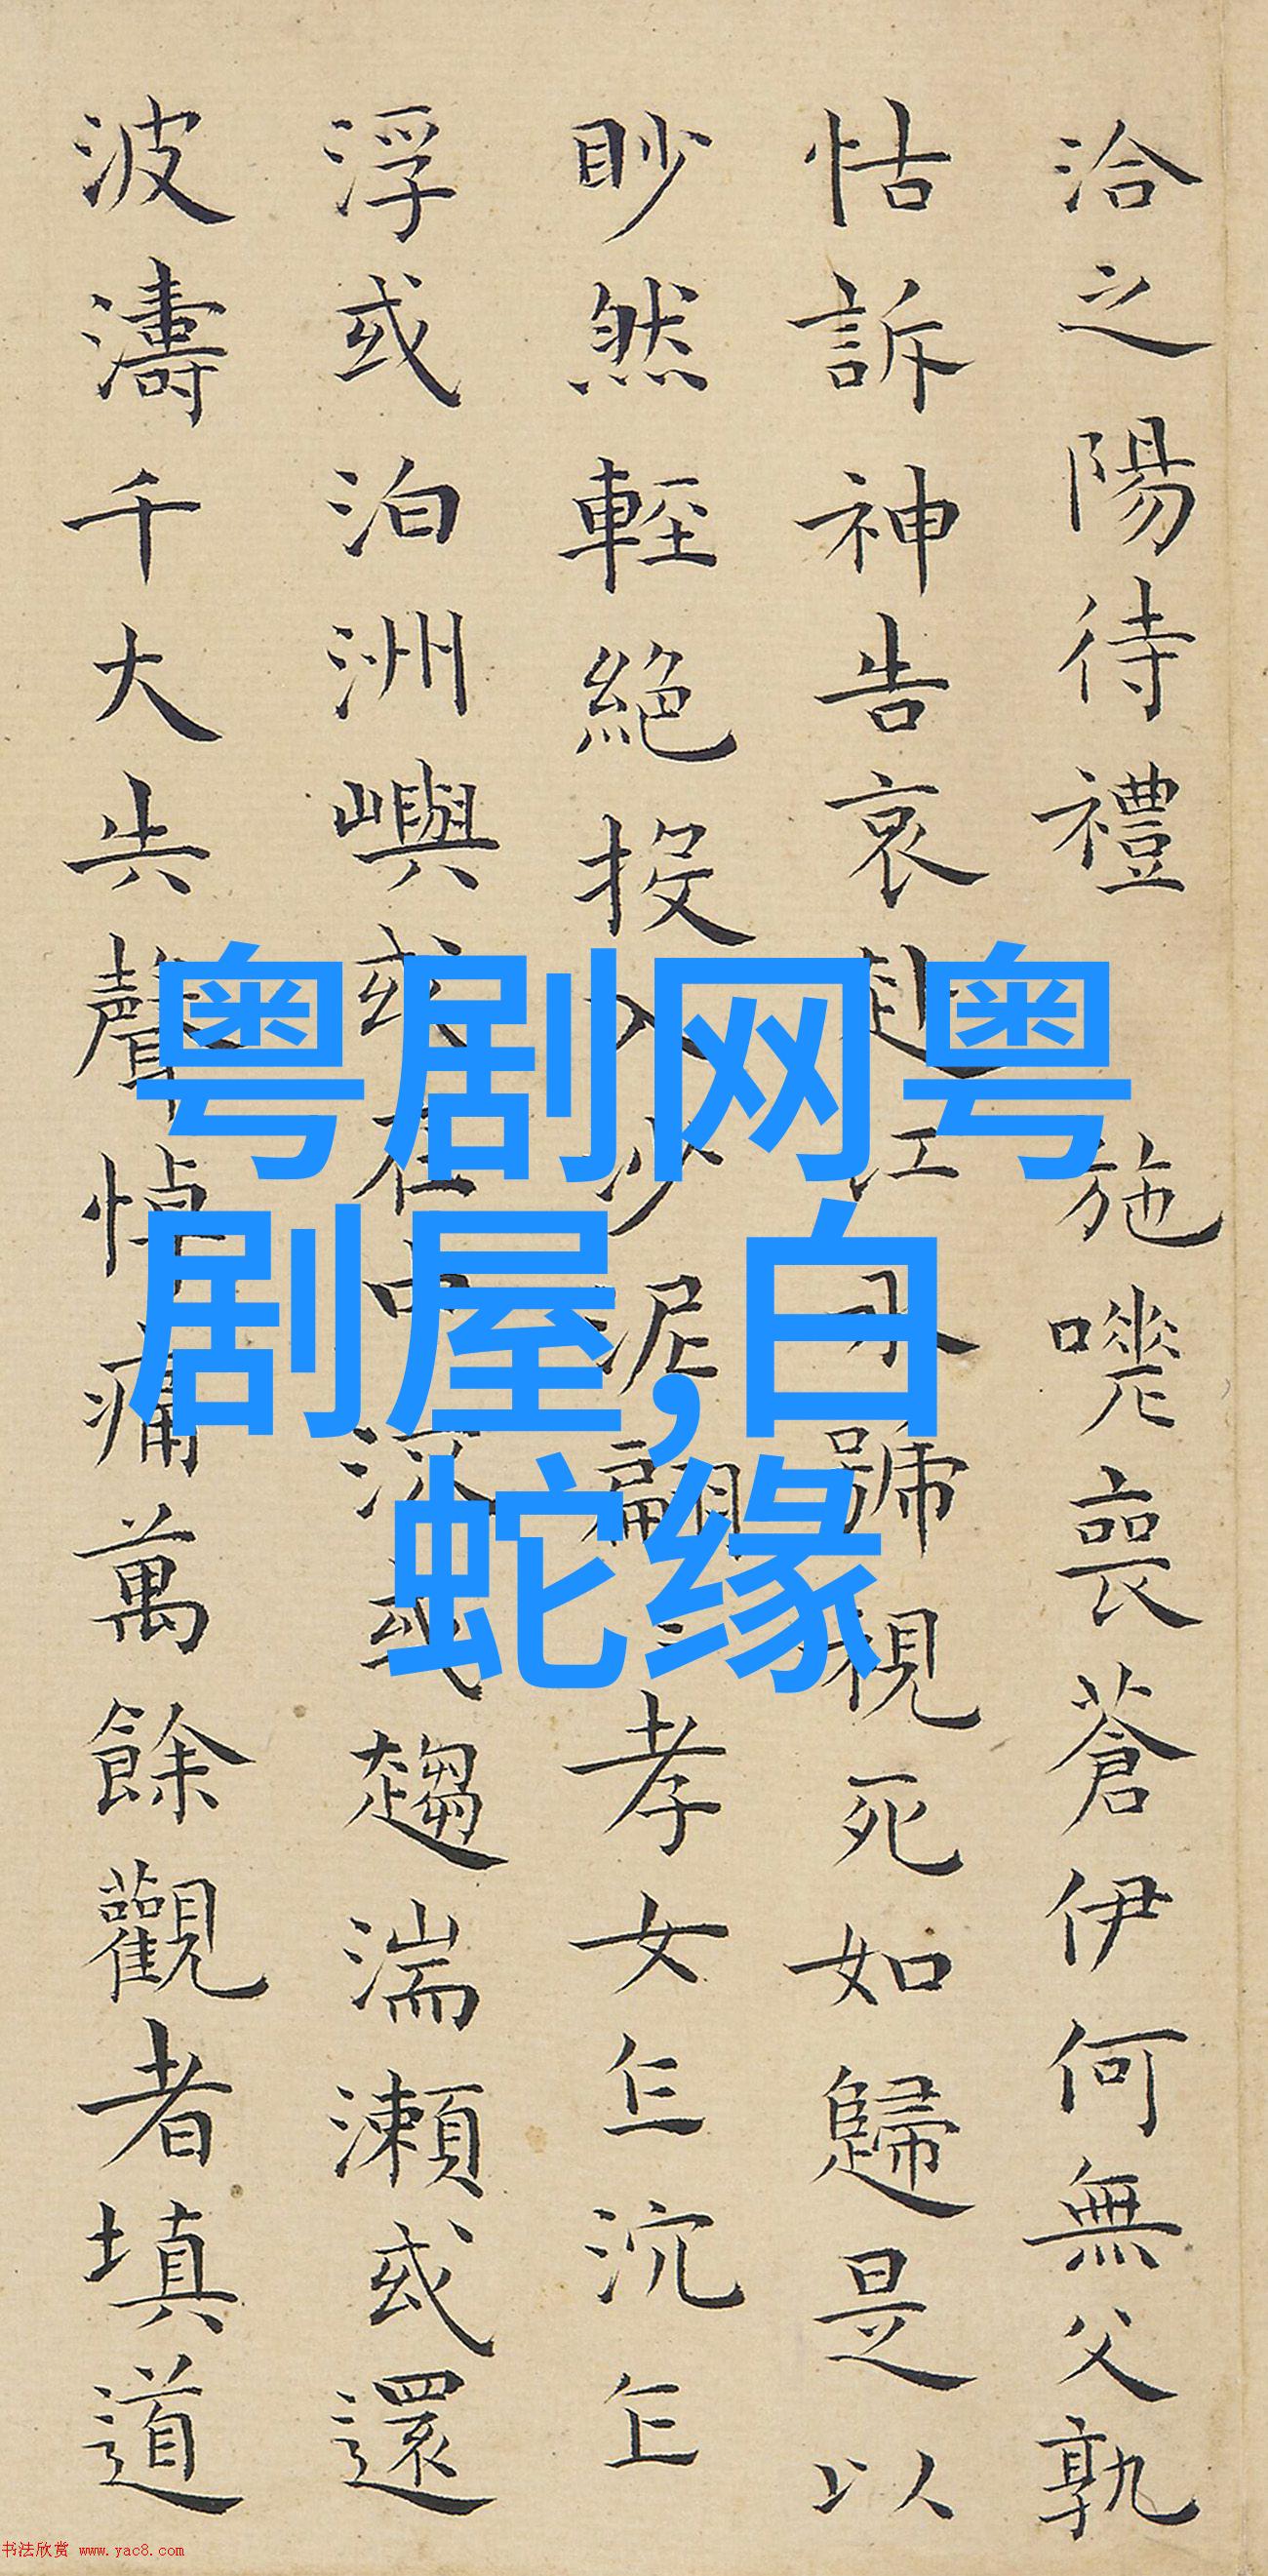 洽之陽待禮 施嗟喪蒼伊何無父孰
怙訴神告哀赴江永號視死如歸是以
眇然輕絕投入沙泥翩二孝女乍沉乍
浮或泊洲嶼或在中流或趨湍瀨或還
波濤千大失聲悼痛萬餘觀者填道
粤剧网粤
剧屋,白
蛇缘
书法欣赏 www.yac8.com